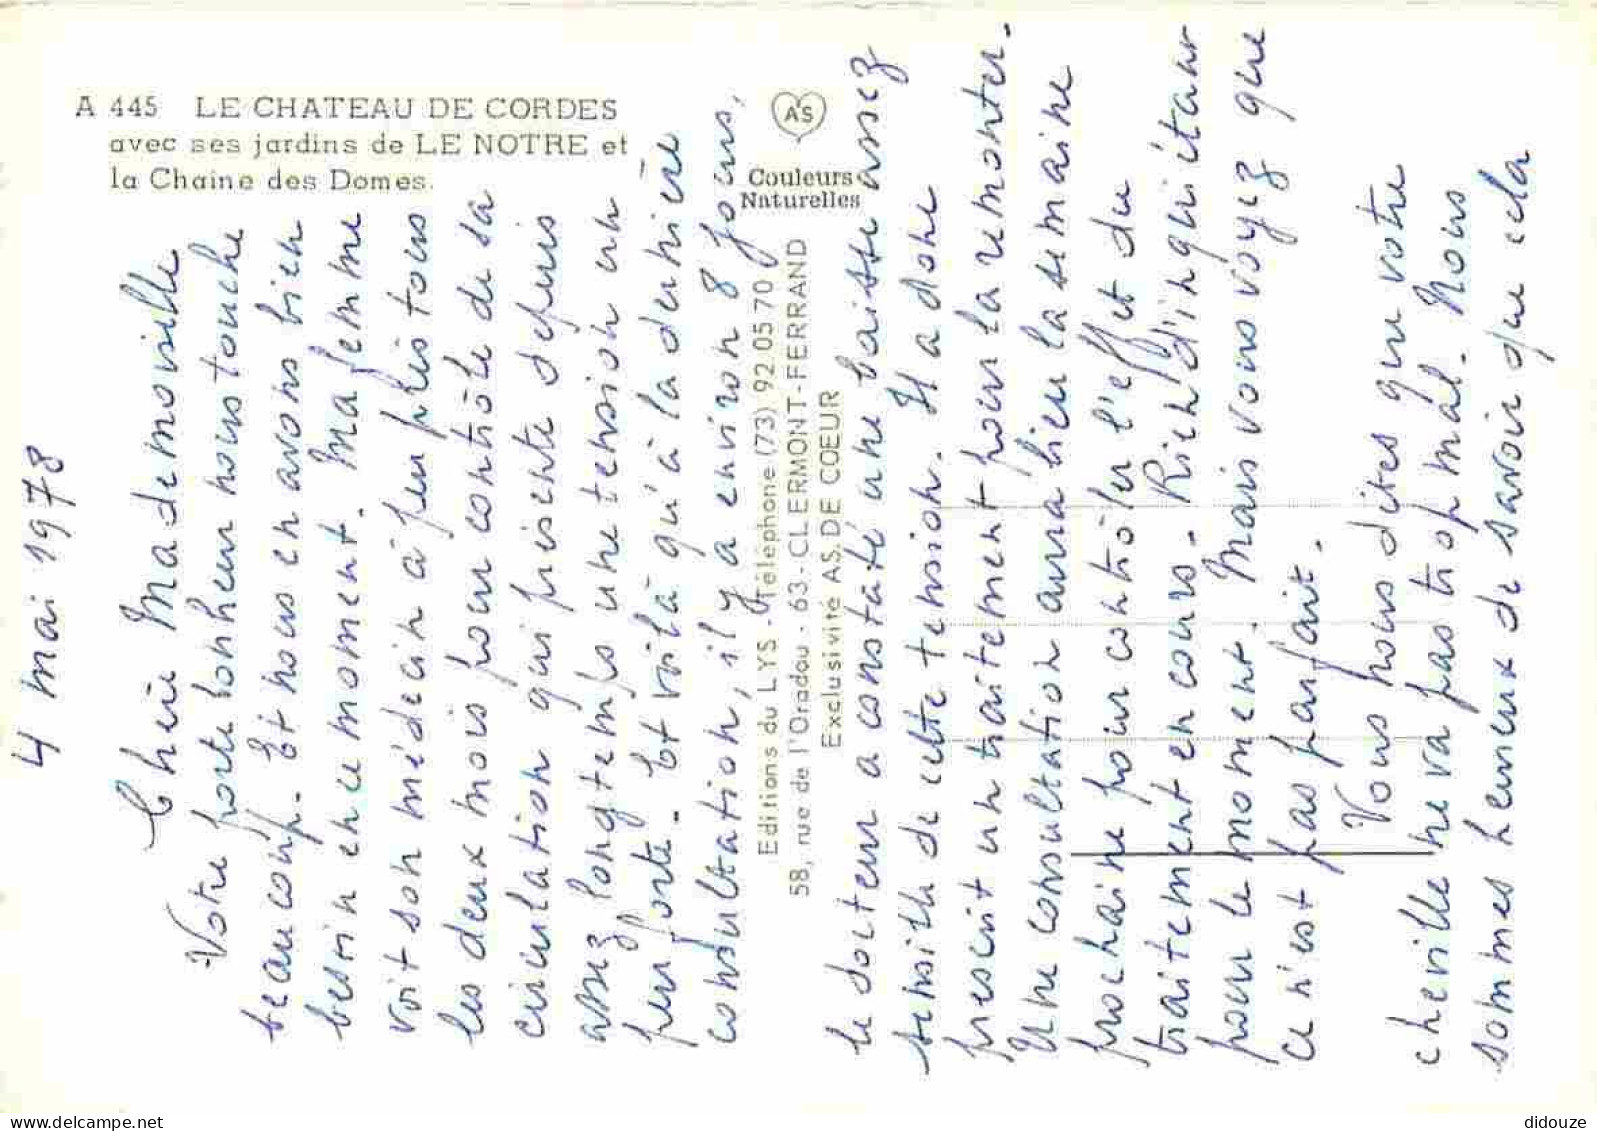 A 445 LE CHATEAU DE CORDES
avec ses jardins de LE NOTRE et
la Chaine des Domes.
AS
Couleurs
Naturelles
Editions du LYS - Téléphone (73) 92 05 70
58, rue de l'Oradou - 63 - CLERMONT-FERRAND
Exclusivité AS. DE COEUR
4 mai 1978
Chère Mademoiselle
Votre porte bonheur nous touche
beaucoup. Et nous en avons bien
besoin en ce moment. Ma femme
voit son médecin à peu près tous
les deux mois pour contrôle de sa
circulation qui présente depuis
assez longtemps une tension un
peu forte. Et voilà qu'à la dernière
consultation, il y a environ 8 jours,
le docteur a constaté une baisse assez
sensible de cette tension. Il a donc
prescrit un traitement pour la remonter.
Une consultation aura lieu la semaine
prochaine pour contrôler l'effet du
traitement en cours. Rien d'inquiétant
pour le moment. Mais vous voyez que
ce n'est pas parfait.
Vous nous dites que votre
cheville ne va pas trop mal. Nous
sommes heureux de savoir que cela
didouze